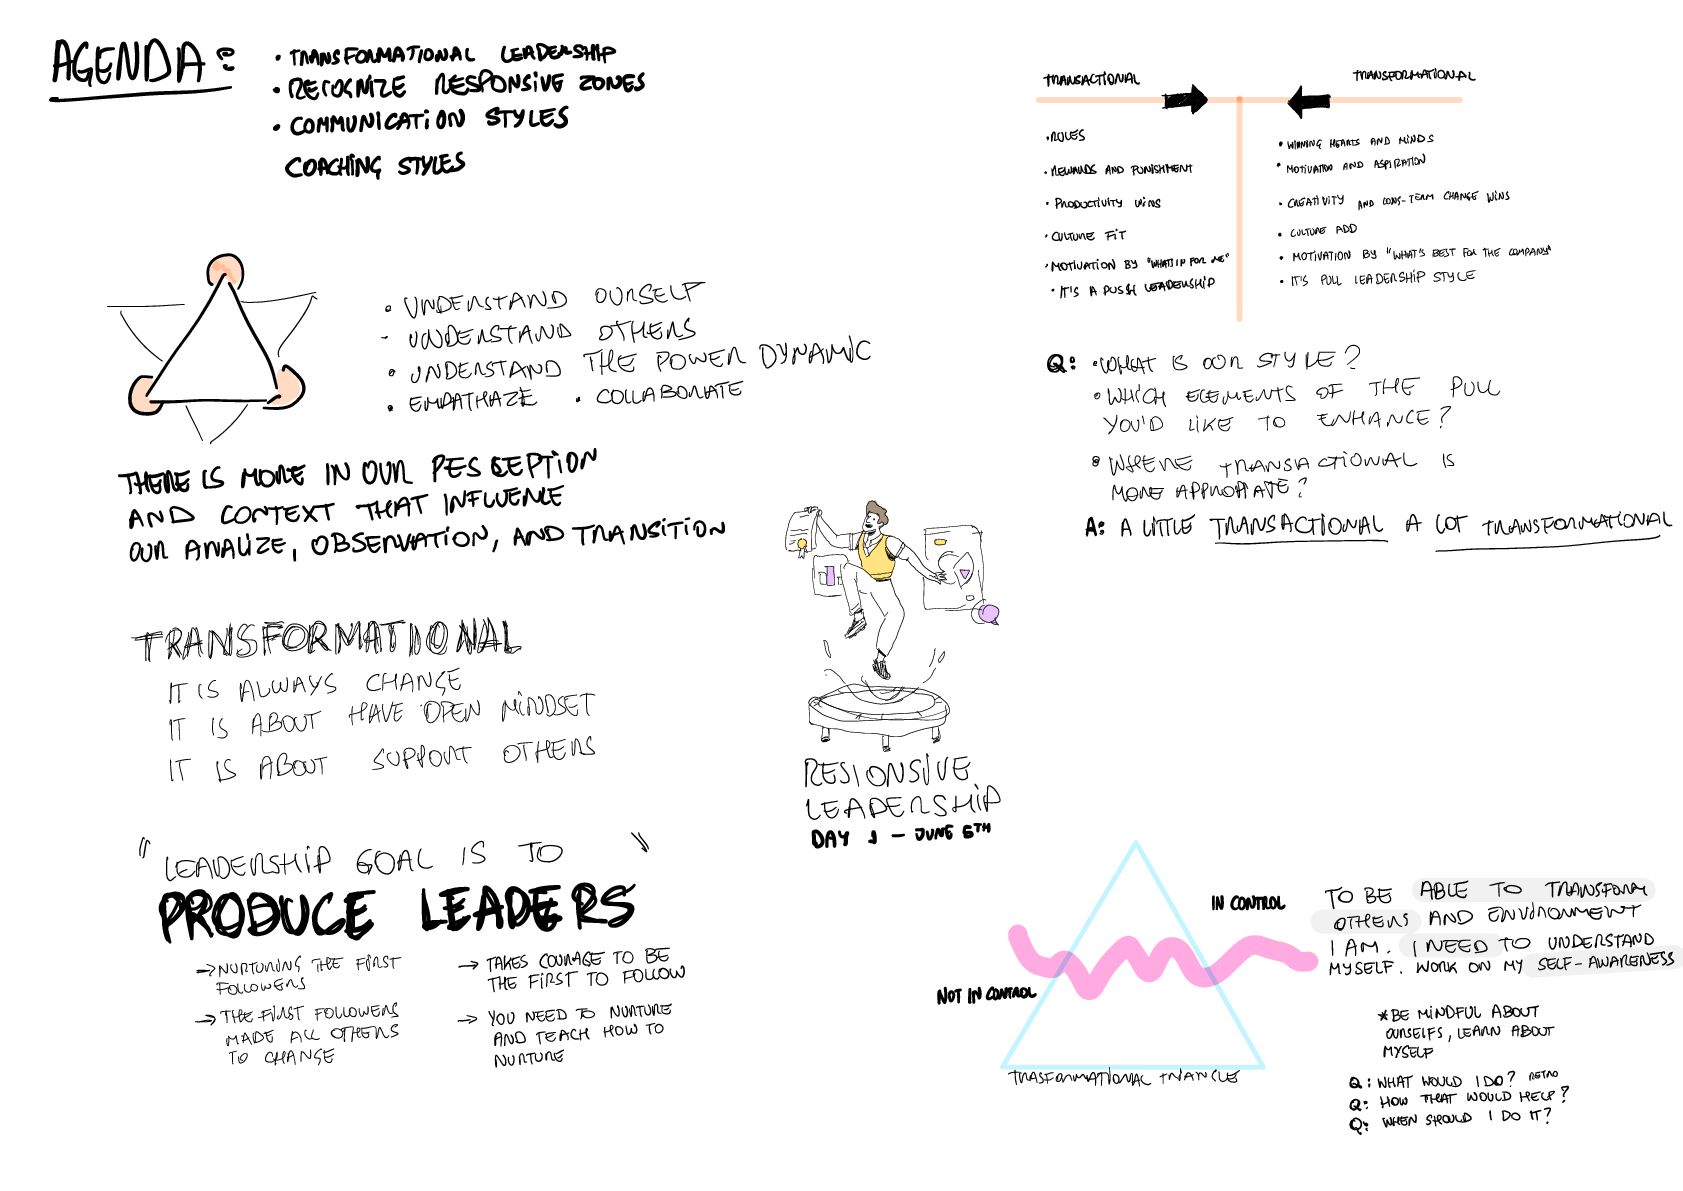 AGENDA:
• TRANSFORMATIONAL LEADERSHIP
• RECOGNIZE RESPONSIVE ZONES
• COMMUNICATION STYLES
COACHING STYLES
• UNDERSTAND OURSELF
- UNDERSTAND OTHERS
• UNDERSTAND THE POWER DYNAMIC
• EMPATHAZE • COLLABORATE
THERE IS MORE IN OUR PESCEPTION
AND CONTEXT THAT INFLUENCE
OUR ANALIZE, OBSERVATION, AND TRANSITION
TRANSFORMATIONAL
IT IS ALWAYS CHANGE
IT IS ABOUT HAVE OPEN MINDSET
IT IS ABOUT SUPPORT OTHERS
"LEADERSHIP GOAL IS TO"
PRODUCE LEADERS
→ NURTURING THE FIRST
FOLLOWERS
→ THE FIRST FOLLOWERS
MADE ALL OTHERS
TO CHANGE
→ TAKES COURAGE TO BE
THE FIRST TO FOLLOW
→ YOU NEED TO NURTURE
AND TEACH HOW TO
NURTURE
RESIONSIVE
LEADERSHIP
DAY 1 – JUNE 6TH
TRANSACTIONAL
• ROLES
• REWARDS AND PUNISHMENT
• PRODUCTIVITY WINS
• CULTURE FIT
• MOTIVATION BY "WHAT IN FOR ME"
• IT'S A PUSH LEADERSHIP
TRANSFORMATIONAL
• WINNING HEARTS AND MINDS
• MOTIVATION AND ASPIRATION
• CREATIVITY AND LONG-TERM CHANGE WINS
• CULTURE ADD
• MOTIVATION BY "WHAT'S BEST FOR THE COMPANY"
• IT'S PULL LEADERSHIP STYLE
Q: • WHAT IS OUR STYLE?
• WHICH ELEMENTS OF THE PULL
YOU'D LIKE TO ENHANCE?
• WHERE TRANSACTIONAL IS
MORE APPROPIATE?
A: A LITTLE TRANSACTIONAL A LOT TRANSFORMATIONAL
IN CONTROL
NOT IN CONTROL
TRASFORMATIONAL TRIANGLE
TO BE ABLE TO TRANSFORM
OTHERS AND ENVIRONMENT
I AM. I NEED TO UNDERSTAND
MYSELF. WORK ON MY SELF-AWARENESS
*BE MINDFUL ABOUT
OURSELFS, LEARN ABOUT
MYSELF
Q: WHAT WOULD I DO? RETRO
Q: HOW THAT WOULD HELP?
Q: WHEN SHOULD I DO IT?